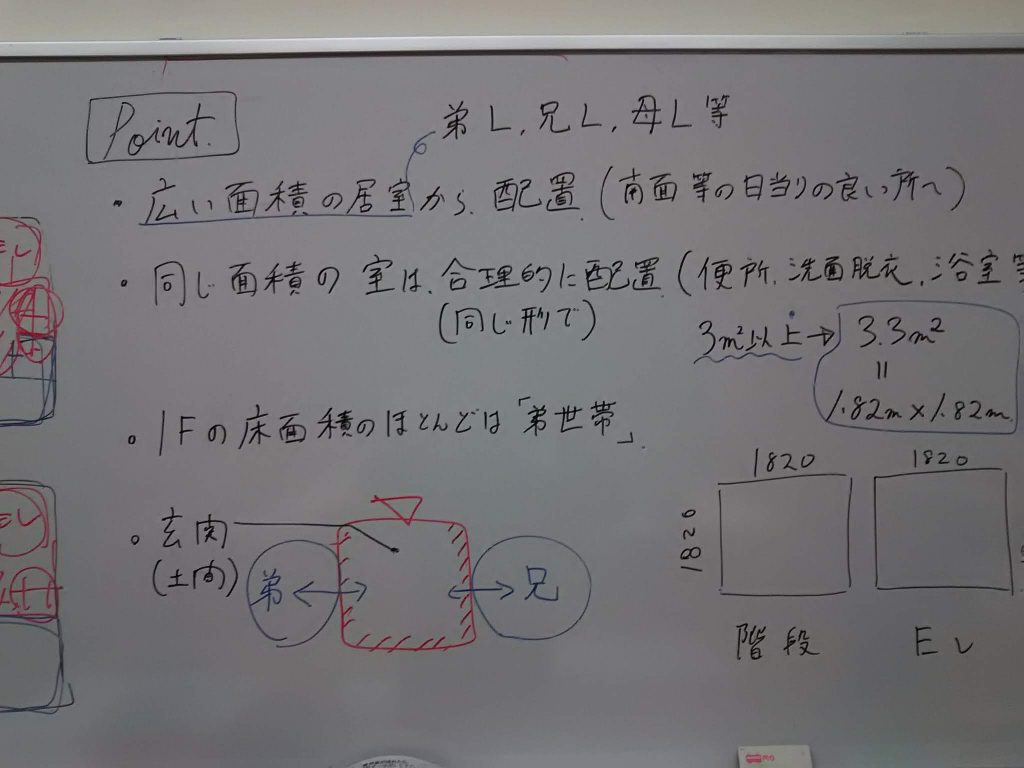 Point.
弟L, 兄L, 母L 等
・広い面積の居室から、配置 (南面等の日当りの良い所へ)
・同じ面積の室は、合理的に配置 (便所、洗面脱衣、浴室等
(同じ形で)
3m²以上→ 3.3m²
=
1.82m×1.82m
・1Fの床面積のほとんどは「弟世帯」.
・玄関
(土間)
弟
兄
1820
1820
階段
1820
EV